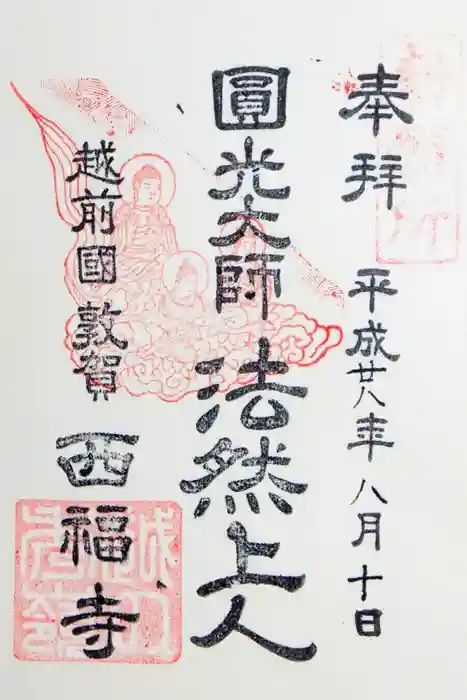 奉拜 平成廿八年 八月十日
圓光大師 法然上人
越前國敦賀 西福寺